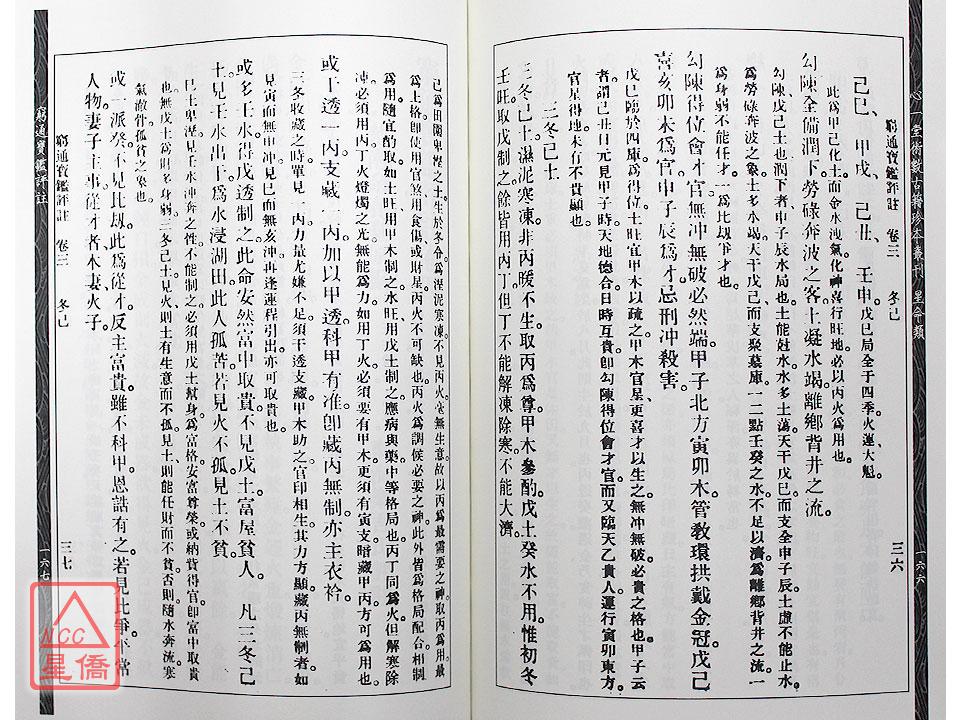 心一堂術數古籍珍本叢刊 星命類
一六六
窮通寶鑑評註 卷三 冬己
三六
己巳、甲戌、己丑、壬申。戊己局全于四季。火運大魁。
此爲甲己化土。而金水洩氣。化神喜行旺地。必以丙火爲用也。
勾陳全備潤下。勞碌奔波之客。土凝水竭。離鄉背井之流。
勾陳。戊己土也。潤下者。申子辰水局也。土能尅水。水多土蕩。天干戊己。而支全申子辰。土虛不能止水。
爲勞碌奔波之象。土多水竭。天干戊己。而支聚墓庫。一二點壬癸之水。不足以濟。爲離鄉背井之流。一
爲身弱不能任才。一爲比刼爭才也。
勾陳得位會才官。無冲無破必然端。甲子北方寅卯木。管教環拱戴金冠。戊己
喜亥卯未爲官。申子辰爲才。忌刑冲殺害。
戊己臨於四庫爲得位。土旺宜甲木以疏之。甲木官星。更喜才以生之。無冲無破。必貴之格也。甲子云
者。謂己丑日元。見甲子時。天地德合。日時互貴。卽勾陳得位會才官。而又臨天乙貴人。運行寅卯東方
官星得地。未有不貴顯也。
三冬己土
三冬己土。濕泥寒凍。非丙暖不生。取丙爲尊。甲木參酌。戊土癸水不用。惟初冬
壬旺。取戊制之。餘皆用丙丁。但丁不能解凍除寒。不能大濟。
己爲田園卑溼之土。生於冬令。爲溼泥寒凍。不見丙火。毫無生意。故以丙爲最需要之神。取丙爲用。最
爲上格。卽使用官煞。用食傷。或財星。丙火不可缺也。丙火爲調候必要之神。此外皆爲格局配合。相制
爲用。隨宜酌取。如土旺用甲木制之。水旺用戊土制之。應病與藥。中等格局也。丙丁同爲火。但解寒除
凍。必須用丙。丁火燈燭之光。無能爲力。如用丁火。必須要有甲木。更須有寅支。暗藏甲丙。方可爲用也。
或干透一丙。支藏一丙。加以甲透。科甲有准。卽藏丙無制。亦主衣衿。
三冬收藏之時。單見一丙。力量尤嫌不足。須干透支藏。甲木助之。官印相生。其力方顯。藏丙無制者。如
見寅而無申冲。見巳而無亥冲。再逢運程引出。亦可取貴也。
或多壬水。得戊透制之。此命安然富中取貴。不見戊土。富屋貧人。 凡三冬己
土。見壬水出干。爲水浸湖田。此人孤苦。若見火不孤。見土不貧。
己土卑溼。見壬水冲奔之性。不能制之。必須用戊土幫身。爲富格。安富尊榮。或納貲得官。卽富中取貴
也。無戊土爲財多身弱。三冬己土。見火。則土有生意而不孤。見土。則能任財而不貧。否則隨水奔流。寒
氣澈骨。孤貧之象也。
或一派癸。不見比刼。此爲從才。反主富貴。雖不科甲。恩誥有之。若見比爭。平常
人物。妻子主事。從才者。木妻火子。
窮通寶鑑評註 卷三 冬己
三七
窮通寶鑑評註
一六七
NCC
星僑